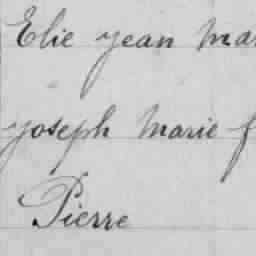 Elie yean Mar
yoseph Marie f
Pierre